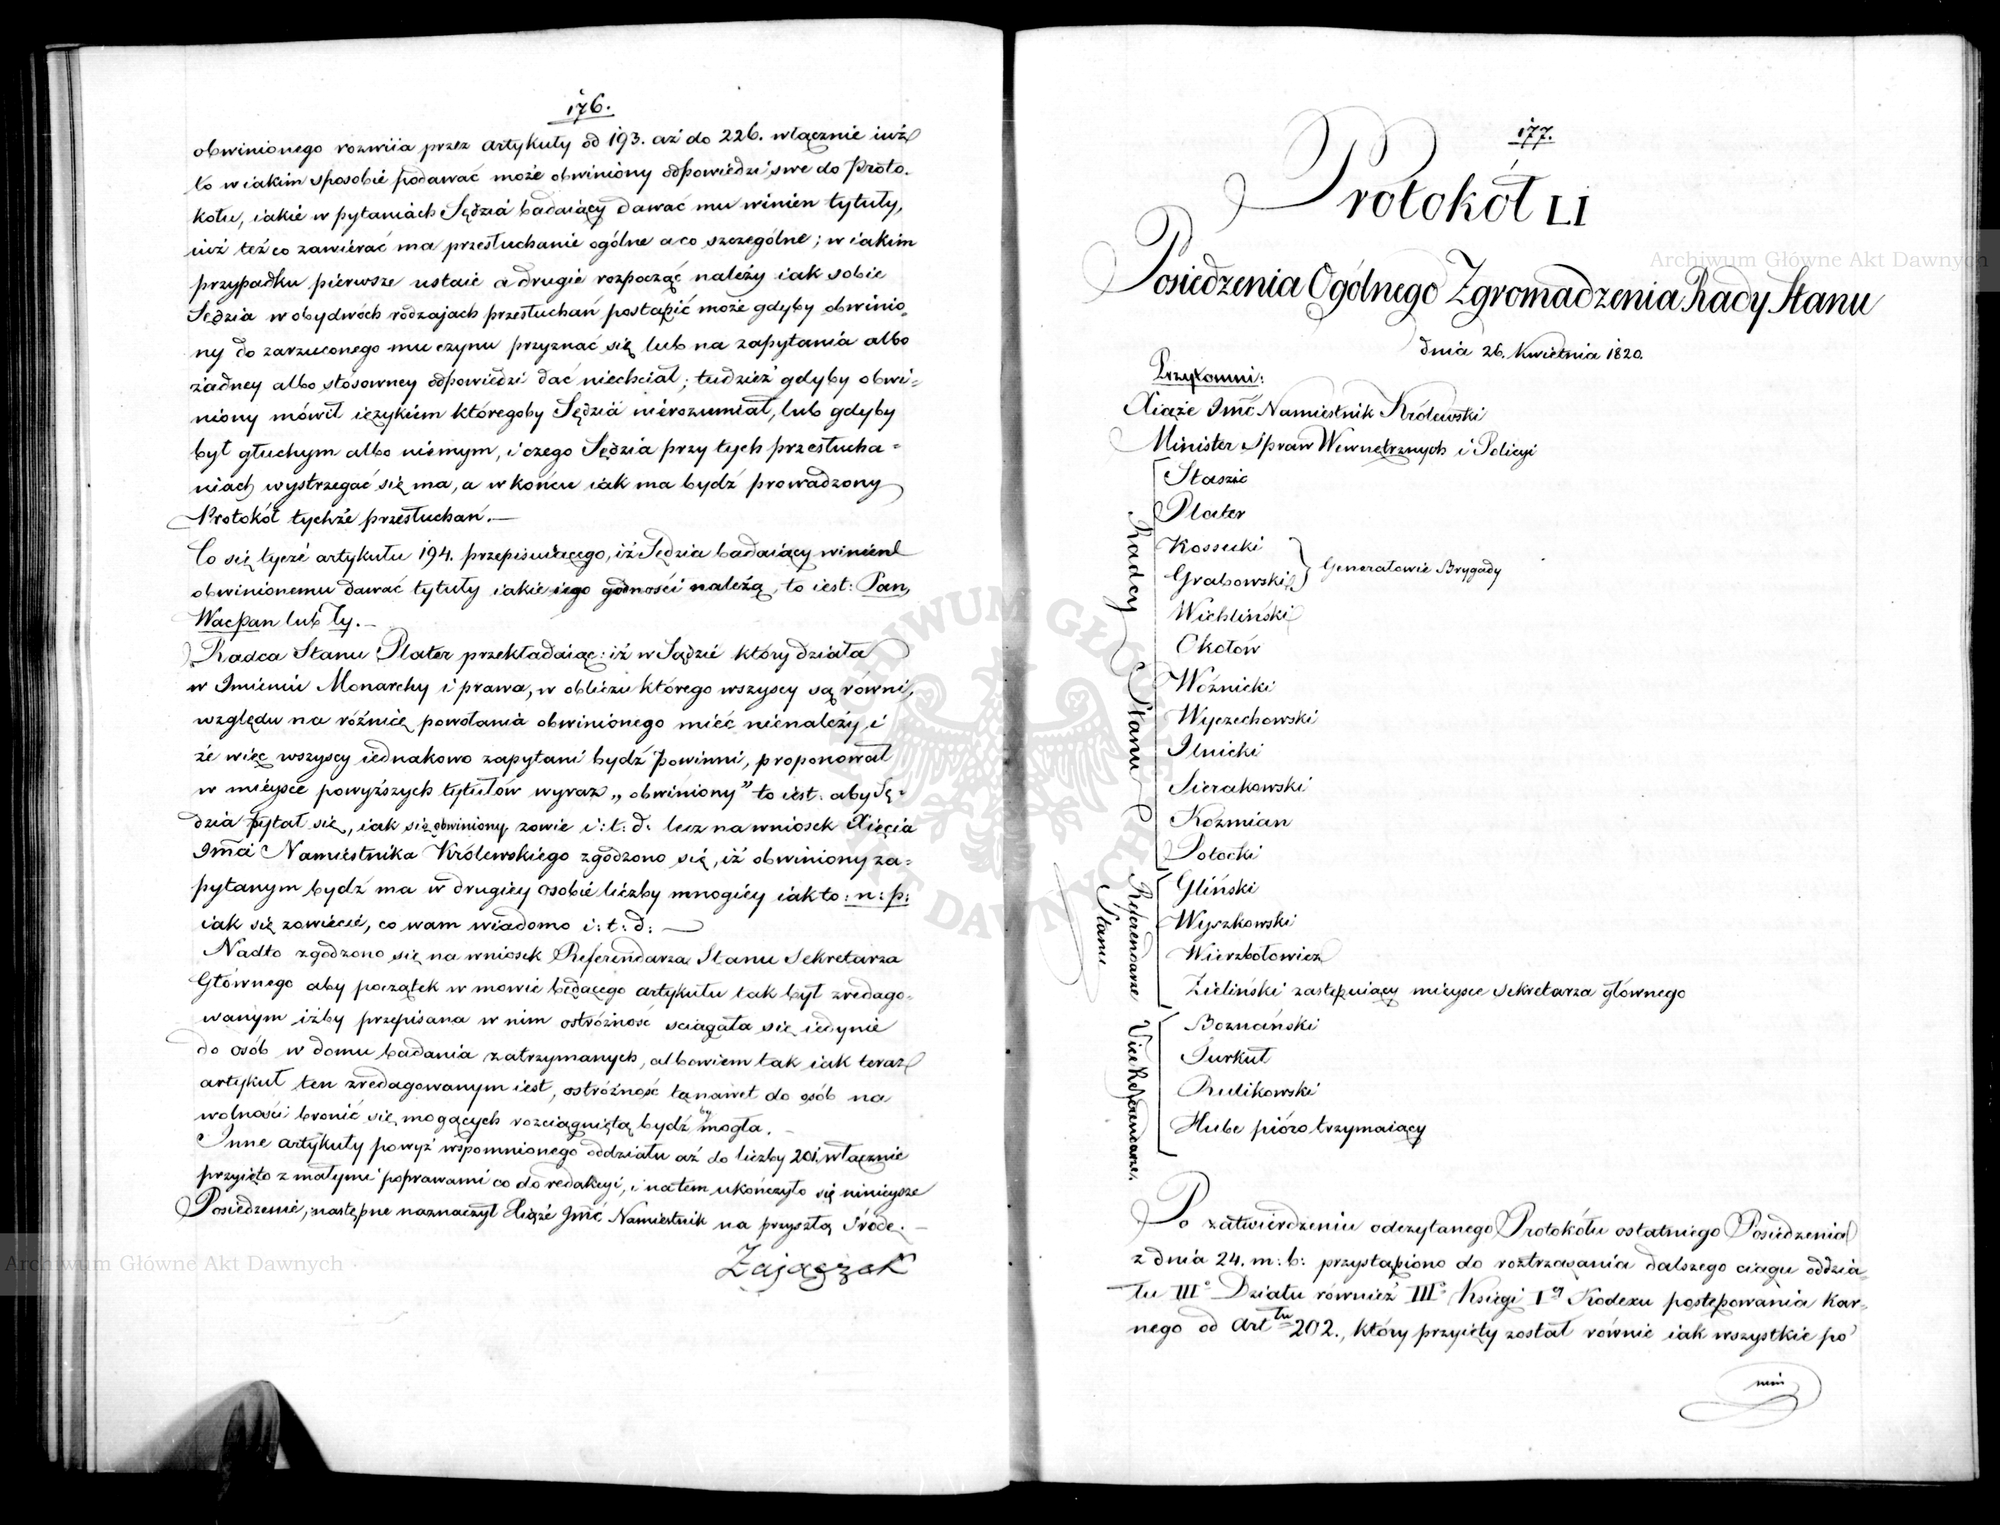 176.
obwinionego rozwiia przez artykuły od 193. aż do 226. włącznie iuż
to w iakim sposobie podawać może obwiniony odpowiedzi swe do Proto-
kołu, iakie w pytaniach Sędzia badaiący dawać mu winien tytuły,
iuż też co zawierać ma przesłuchanie ogólne a co szczególne; w iakim
przypadku pierwsze ustaie a drugie rozpocząć należy iak sobie
Sędzia w obydwóch rodzajach przesłuchań postąpić może gdyby obwinio-
ny do zarzuconego mu czynu przyznać się lub na zapytania albo
żadney albo stosowney odpowiedzi dać niechciał; tudzież gdyby obwi-
niony mówił ięzykiem któregoby Sędzia nierozumiał, lub gdyby
był głuchym albo niemym, i czego Sędzia przy tych przesłucha-
niach wystrzegać się ma, a w końcu iak ma bydź prowadzony
Protokół tychże przesłuchań.—
Co się tycze artykułu 194. przepisuiącego, iż Sędzia badaiący winien
obwinionemu dawać tytuły iakie iego godności należą, to iest: Pan,
Wacpan lub Ty.—
Radca Stanu Plater przekładaiąc: iż w Sądzie który działa
w Imieniu Monarchy i prawa, w obliczu którego wszyscy są równi,
względu na różnicę powołania obwinionego mieć nienależy i
że więc wszyscy iednakowo zapytani bydź powinni, proponował
w mieysce powyższych tytułów wyraz „obwiniony” to iest: aby Sę-
dzia pytał się, iak się obwiniony zowie i: t: d: lecz na wniosek Xięcia
Jmci Namiestnika Królewskiego zgodzono się, iż obwiniony za-
pytanym bydź ma w drugiey osobie liczby mnogiey iak to: n: p:
iak się zowiecie, co wam wiadomo i: t: d: —
Nadto zgodzono się na wniosek Referendarza Stanu Sekretarza
Głównego aby początek w mowie będącego artykułu tak był zredago-
wanym iżby przepisana w nim ostróżność sciągała się iedynie
do osób w domu badania zatrzymanych, albowiem tak iak teraz
artykuł ten zredagowanym iest, ostróżność ta nawet do osób na
wolności bronić się mogących rozciągniętą bydź by mogła.—
Inne artykuły powyż wspomnionego oddziału aż do liczby 201. włącznie
przyięto z małymi poprawami co do redakcyi, i na tem ukończyło się ninieysze
Posiedzenie, następne naznaczył Xiąże Jmć Namiestnik na przyszłą Środę.—
Zajączek
177.
Protokół LI
Posiedzenia Ogólnego Zgromadzenia Rady Stanu
dnia 26. Kwietnia 1820.
Przytomni:
Xiąże Jmć Namiestnik Królewski
Minister Spraw Wewnętrznych i Policyi
Radcy Stanu
Staszic
Plater
Kossecki
Grabowski
Generałowie Brygady
Wichliński
Okołów
Woźnicki
Wyczechowski
Ilnicki
Sierakowski
Koźmian
Potocki
Referendarze Stanu
Gliński
Wyszkowski
Wierzbołowicz
Zieliński zastępuiący mieysce Sekretarza głównego
Vice Referendarze.
Boznański
Turkuł
Rulikowski
Hube pióro trzymaiący
Po zatwierdzeniu odczytanego Protokółu ostatniego Posiedzenia
z dnia 24. m: b: przystąpiono do roztrząsania dalszego ciągu oddzia-
łu IIIº Działu również IIIº Księgi Iey Kodexu postępowania Kar-
nego od Arttu 202., który przyięty został równie iak wszystkie po
nim
Archiwum Główne Akt Dawnych
Archiwum Główne Akt Dawnych
ARCHIWUM GŁÓWNE AKT DAWNYCH